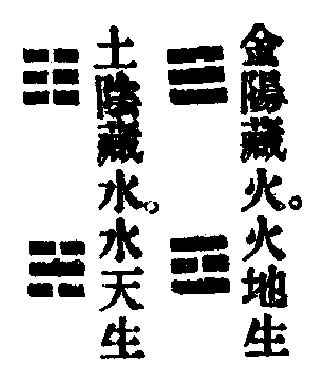 金陽藏火。火地生
土陰藏水。水天生